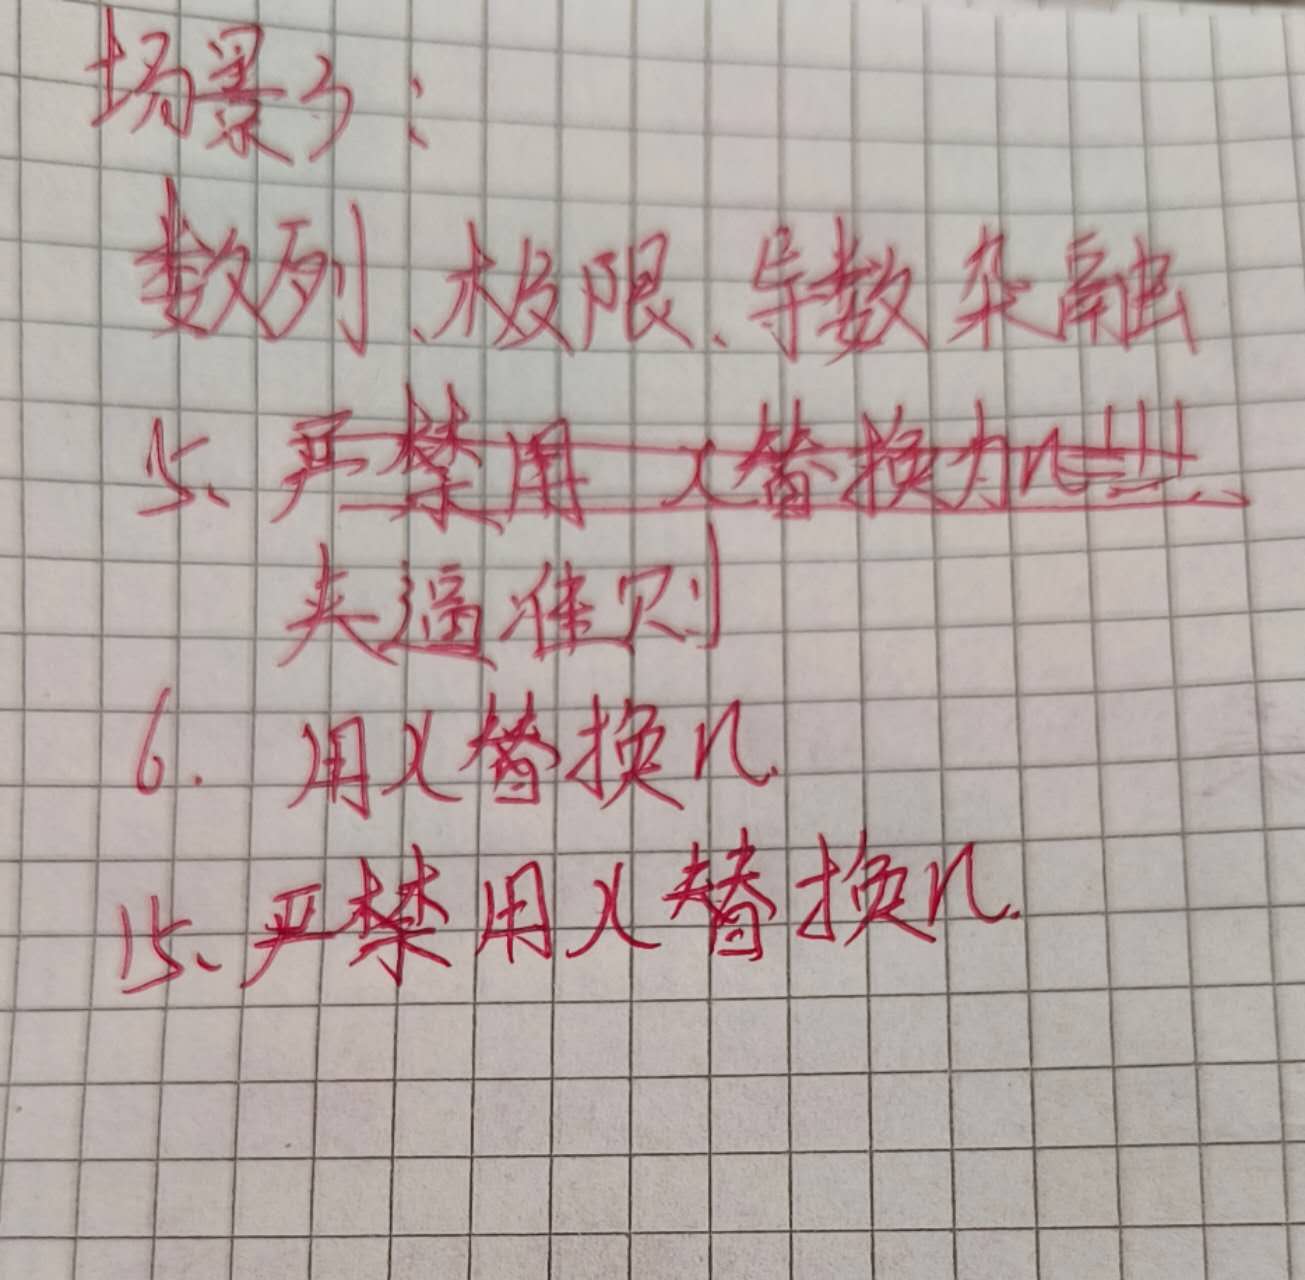 场景3：
数列、极限、导数杂融
5、严禁用 x替换为n!!!
夹逼准则
6. 用x替换n.
15、严禁用x替换n.